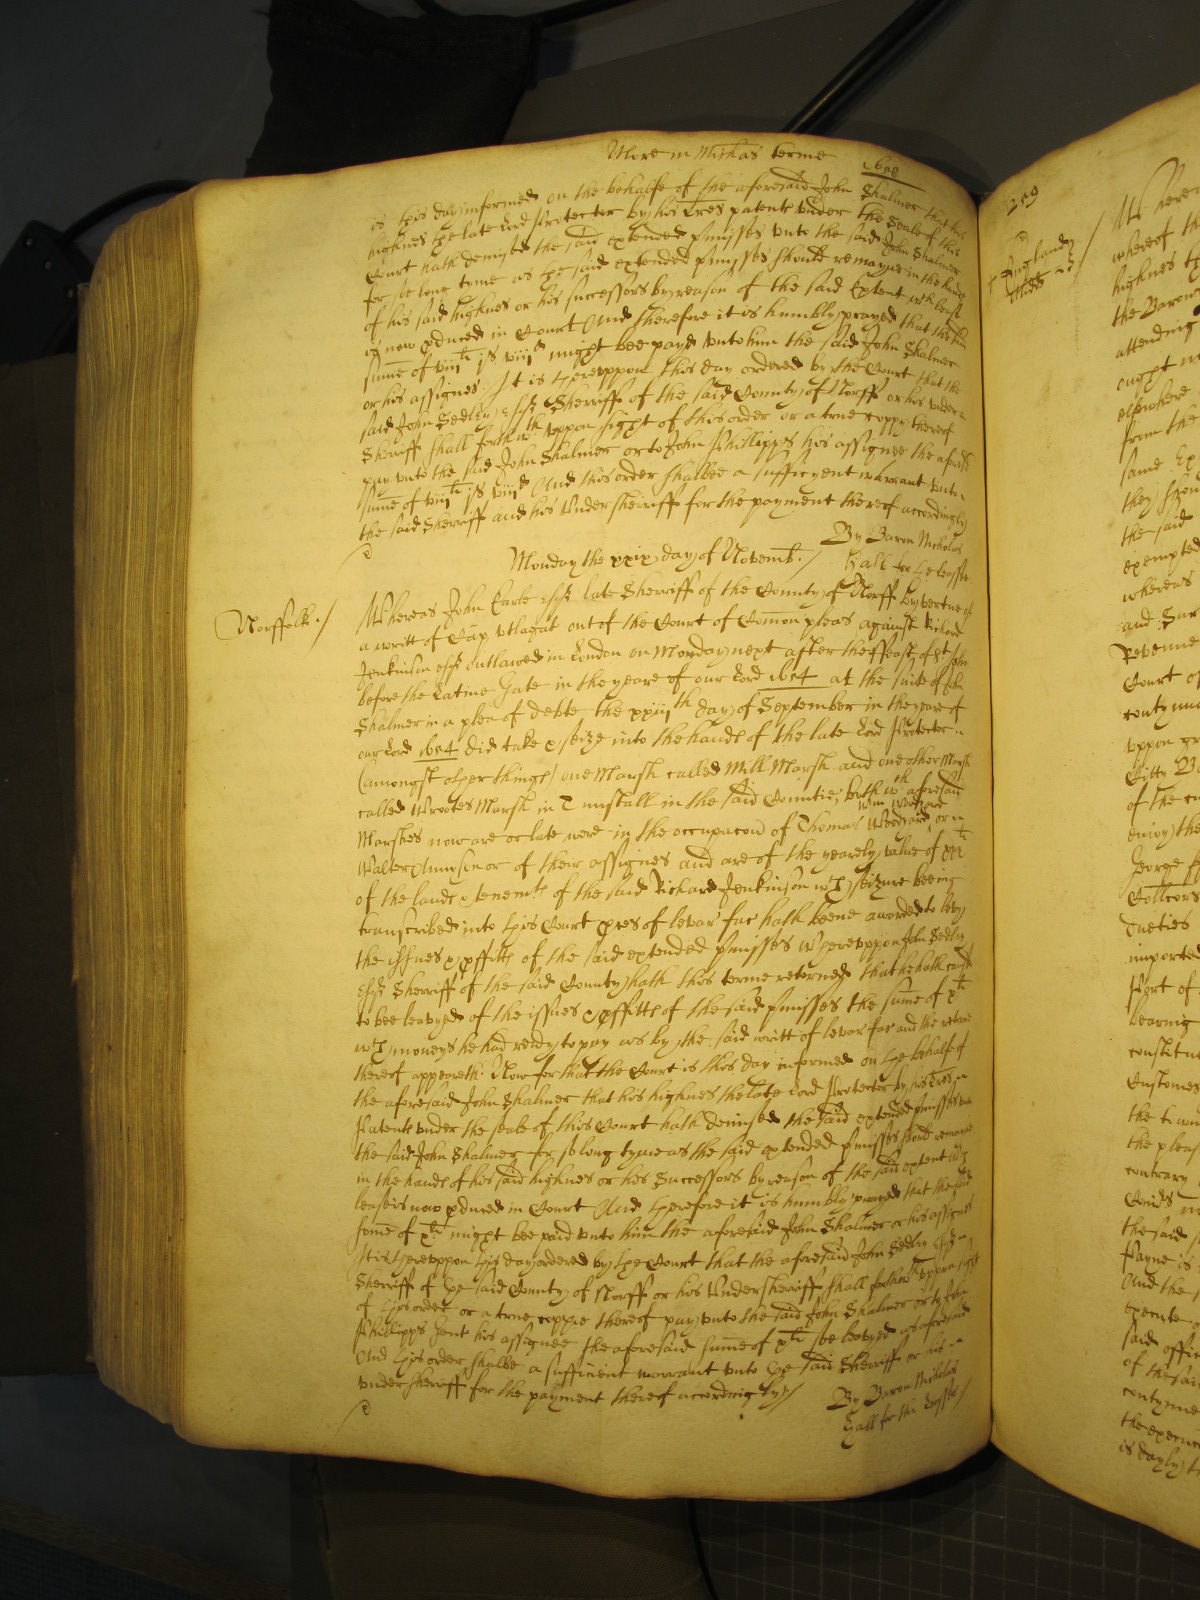 More in Mich'as terme 1658
is this day informed on the behalfe of the aforesaid John Shalmer that his
highnes the late Lord Protector by his Lres patents under the Seale of this
Court hath demised the said extended pmisses unto the said John Shalmer
for soe long tyme as the said extended pmisses should remayne in the hands
of his said highnes or his successors by reason of the said Extent wch lease
is now pduced in Court And therefore it is humbly prayed that the said
sume of viijli js viijd might bee payd unto him the said John Shalmer
or his assignes It is thereuppon this day ordered by the Court that the
said John Sedley esqr Sherriff of the said County of Norff or his under
Sherriff shall forthwth uppon sight of this order or a true coppy thereof
pay unto the said John Shalmer or to John Phillipps his assignee the aforesd
sume of viijli js viijd And this order shalbee a sufficyent warrant unto
the said Sherriff and his Undersherriff for the payment thereof accordingly
By Baron Nicholas
Hall for the leassee
Monday the xxix day of Novemb. /
Norffolk. /
Whereas John Earle esqr late Sherriff of the County of Norff by vertue of
a writt of Cap utlagat out of the Court of Comon pleas against Richard
Jenkinson esqr outlawed in London on Monday next after the ffeast of St John
before the Latine Gate in the yeare of our Lord 1654 at the suite of John
Shalmer in a plea of debte the xxiijth day of September in the yeare of
our Lord 1654 did take & seize into the hands of the late Lord Protector
(amongst other things) one Marsh called Mill Marsh and one other Marsh
called Wrootes Marsh in Tunstall in the said Countie, both wch aforesaid
Marshes now are or late were in the occupacon of Thomas Woodward or
Walter or of their assignes and are of the yearely value of xxli
of the lands & tenemts of the said Richard Jenkinson wch seizure beeing
transcribed into this Court pces of levar' fac hath beene awarded to levy
the issues & pffitts of the said extended pmisses Whereuppon John Sedley
esqr Sherriff of the said County hath this terme returned that he hath caused
to bee leavyed of the issues & pffitts of the said pmisses the sume of xli
wch moneys he had ready to pay as by the said writt of levar fac and the retorne
thereof appeareth Now for that the Court is this day informed on the behalfe of
the aforesaid John Shalmer that his highnes the late Lord Protector by his Lres
Patents under the seale of this Court hath demised the said extended pmisses unto
the said John Shalmer for so long tyme as the said extended pmisses should remayne
in the hands of his said highnes or his Successors by reason of the said extent wch
lease is now pduced in Court And therefore it is humbly prayed that the said
some of xli might bee paid unto him the aforesaid John Shalmer or his assignes
It is thereuppon this day ordered by the Court that the aforesaid John Sedley esqr
Sherriff of the said County of Norff or his Undersherriff shall forthwth uppon sight
of this order or a true coppie thereof pay unto the said John Shalmer or to John
Phillipps gent his assignee the aforesaid sume of xli soe leavyed as aforesaid
And this order shalbe a sufficient warrant unto the said Sherriff or his
undersherriff for the payment thereof accordingly /
By Baron Nicholas
Hall for the Leassee /
259
England
Whereas
whereof th
highnes t
the Baron
attending
ought
elsewhere
from the
same Ex
they shou
the said
exempted
whereas
and Sur
Revenue
Court of
contynu
uppon
Citty
of the
enioy the
George
Collcors
Dueties
imported
Port of
bearing
constitu
Customes
the town
the pleas
contrary
the said
Payne is
And the
execute
said offic
of the said
contynue
the execu
is dayly